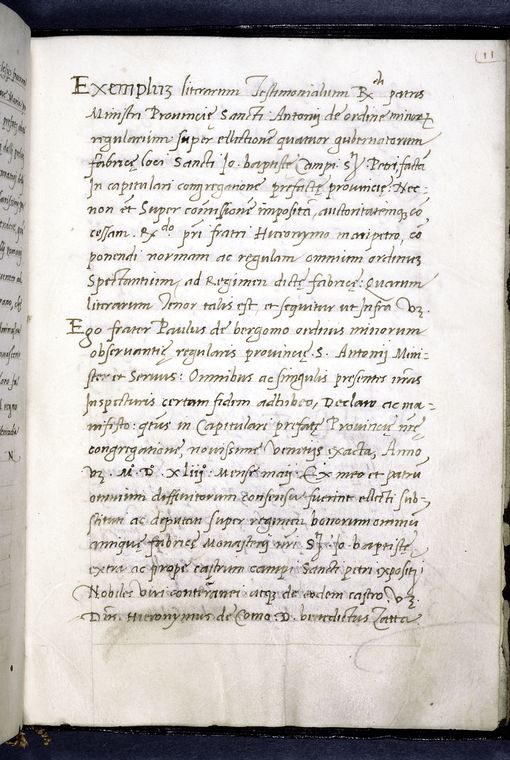 11
Exemplum literarum Testimonialium Rdi patris
Ministri Provincię Sancti Antonij de ordine minorꝝ
regularium: super ellectione quatuor gubernatorum
fabricę loci Sancti Jo. baptistę Campi Sti Petri, facta
In capitulari congregatione prefatę provincię. Nec-
non et Super comissione imposita, auctoritateqꝫ cō,
cessam. Rdo. pri fratri Hieronymo maripetro, cō
ponendi normam ac regulam omnium ordinum
Spectantium, ad Regimen dictę fabricę: Quarum
literarum tenor talis est, et sequitur ut infra Vz.
Ego frater Paulus de bergomo ordinis minorum
observantię regularis provincię .S. Antonij Mini-
ster et Servus: Omnibus ac singulis presentes n̄ras
Inspecturis certam fidem adhibeo, Declaro ac ma-
nifesto: qtus in Capitulari prefatę Provincię n̄rę
congregatione, novissime Venetijs exacta, Anno
Vz. Mo. Do. Xliijo. Mense maij. Ex meo et patrū
omnium diffinitorum consensu fuerint ellecti sub-
stituti ac deputati super regimen bonorum omniū
antiquę fabricę Monasterij nr̄i Sti. Jo. baptistę
extra ac prope castrum campi Sancti petri expositi
Nobiles Viri conterranei utqꝫ de eodem castro Vz.
D̄n̄s. Hieronymus de Como. D. benedictus Zatta